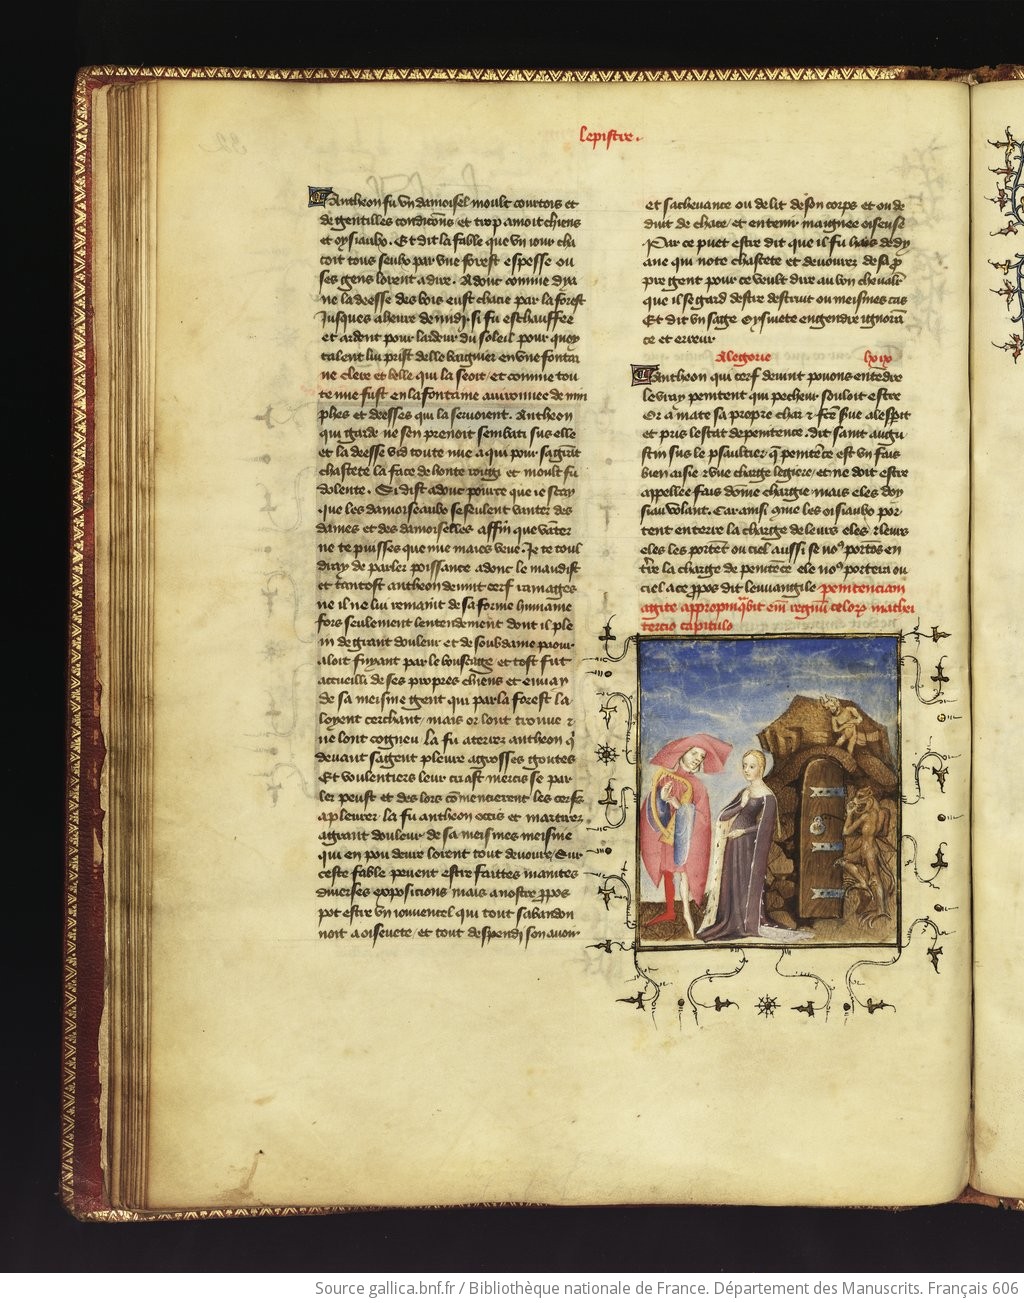 Lepistre.
Antheon fu Un damoisel moult courtois et
de gentilles condicōns et trop amoit chiens
et oysiaulx. Et dit la fable que un iour cha
coit tous seulx par une forest espesse ou
ses gens lorent adire. Adonc comme dya
ne la deesse des bois eust chacie par la forest
Jusques a heure de midy. si fu eschauffee
et ardent pour lardeur du soleil pour quoy
talent lui prist delle baignier en une fontai
ne clere et belle qui la seoit / et comme tou
te nue fust en la fontaine avironnee de nim
phes et deesses qui la servoient. Antheon
qui garde ne sen prenoit sembati sus elle
et la deesse vid toute nue a qui pour sa grāt
chastete la face de honte rougi et moult fu
dolente. Si dist adonc pource que ie scay
que les damoiseaulx se seulent vanter des
dames et des damoiselles affin que vāter
ne te puisses que nue maies veue. Je te toul
diray de parler poissance adonc le maudist
et tantost antheon devint cerf ramages
ne il ne lui remaint de sa forme humaine
fors seulement lentendement dont il ple
in de grant douleur et de soubdaine paour
aloit fuyant par le bouscage et tost fut
accueilli de ses propres chiens et envay
de sa meisme gent qui par la forest la
loyent cerchant / mais or lont trouve ⁊
ne lont cogneu la fu aterrer antheon q̄
devant sa gent pleure a grosses goutes
Et voulentiers leur criast mercis se par
ler peust et des lors cōmencierent les cerfs
a pleurer. la fu antheon occis et martirez
a grant douleur de sa meismes meisnie
qui en pou deure lorent tout devoure / Sur
ceste fable peuent estre faittes maintes
diverses exposicions mais a nostre ꝓpos
pot estre un iouvencel qui tout sabandon
noit a oiseuete / et tout despendi son avoir
et sachevance ou delit de son corps et ou de
duit de chace / et en tenir maignee oiseuse
Par ce puet estre dit que il fu hais de dy
ane qui note chastete et devourez de sa ꝓ
pre gent pour ce veult dire au bon chevalr̄
que il se gard destre destruit ou meismes cas
Et dit un sage Oysivete engendre ignorā
ce et erreur
Alegorie lxix
Antheon qui cerf devint povons entēdre
le vray penitent qui pecheur souloit estre
Or a mate sa propre char ⁊ fc̄e s'ue alesp̄it
et pris lestat de penitence. dit saint augu
stin sus le psaultier q̄ penitēce est un fais
bien aisie ⁊ une charge legiere / et ne doit estre
appellee fais dōme chargie mais eles doy
siau volant. Car ainsi que les oisiaulx por
tent en terre la charge de leurs eles ⁊ leurs
eles les portēt ou ciel aussi se noꝰ portōs en
t̄re la charge de penitēce ele noꝰ portera ou
ciel a ce ꝓpos dit leuvangile penitenciam
agite appropinq̄bit em̄ regnū celoꝝ mathei
tercio capitulo
Source gallica.bnf.fr / Bibliothèque nationale de France. Département des Manuscrits. Français 606